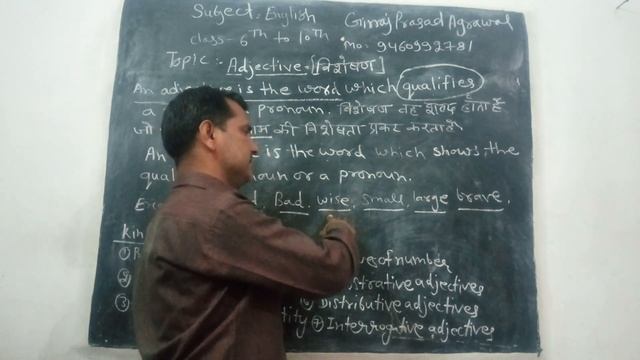 Subject - English Girraj Prasad Agrawal
class - 6th to 10th Mo: 9460992781
Topic :- Adjective - [विशेषण]
An adjective is the word which qualifies
a pronoun. विशेषण वह शब्द होता है
जो की विशेषता प्रकट करता है
An is the word which shows the
qual noun or a pronoun.
Bad, wise, small, large brave.
Kin
① of number
② strative adjectives
③ ⑥ Distributive adjectives
tity ⑦ Interrogative adjectives